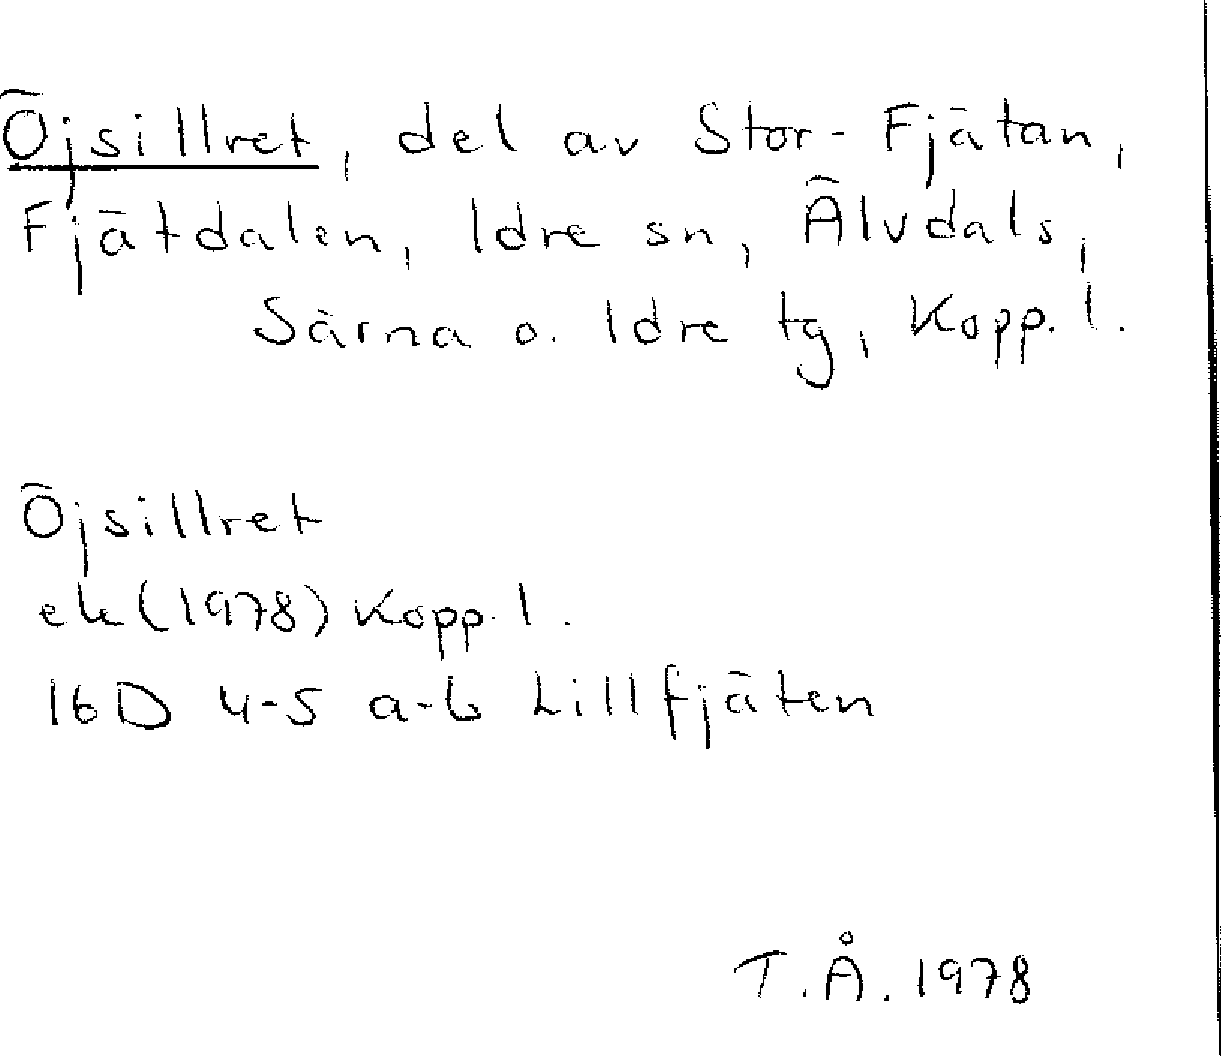 Öjsillret, del av Stor-Fjätan,
Fjätdalen, Idre sn, Älvdals,
Särna o. Idre tg, Kopp. l.
Öjsillret
ek (1978) Kopp. l.
16D 4-5 a-b Lillfjäten
T.Å. 1978